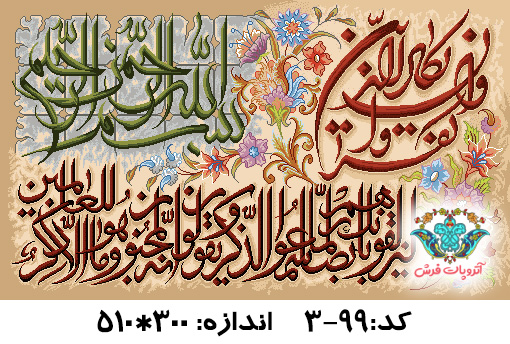 بسم الله الرحمن الرحيم
وان يكاد الذين كفروا
ليزلقونك بابصارهم لما سمعوا الذكر ويقولون انه لمجنون وما هو الا ذكر للعالمين
آتروپات فرش
کد:۹۹-۳ اندازه: ۳۰۰*۵۱۰